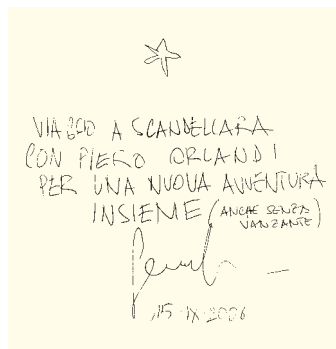 VIAGGIO A SCANDELLARA
CON PIERO ORLANDI
PER UNA NUOVA AVVENTURA
INSIEME (ANCHE SENZA
VANZANTE)
15·IX·2006